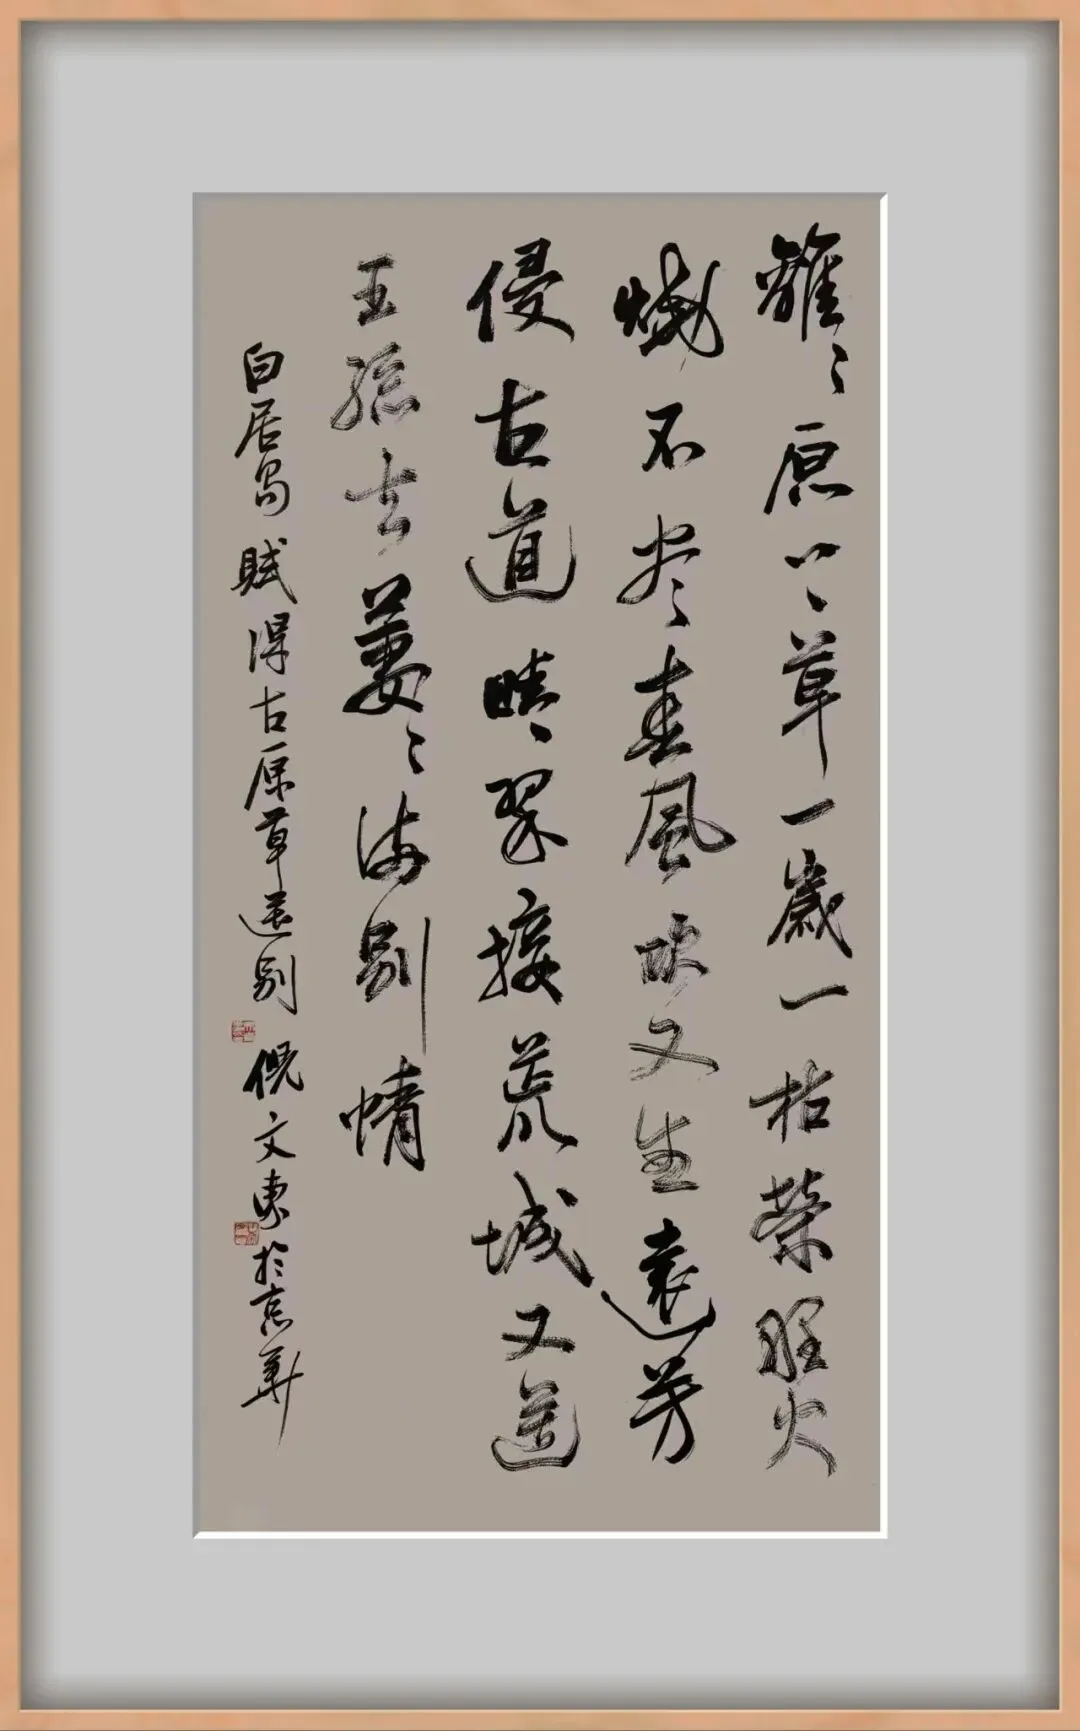 離〻原上草一歲一枯榮野火
燒不尽春風吹又生遠芳
侵古道晴翠接荒城又送
王孫去萋〻満別情
白居易賦得古原草送別 倪文東於京華